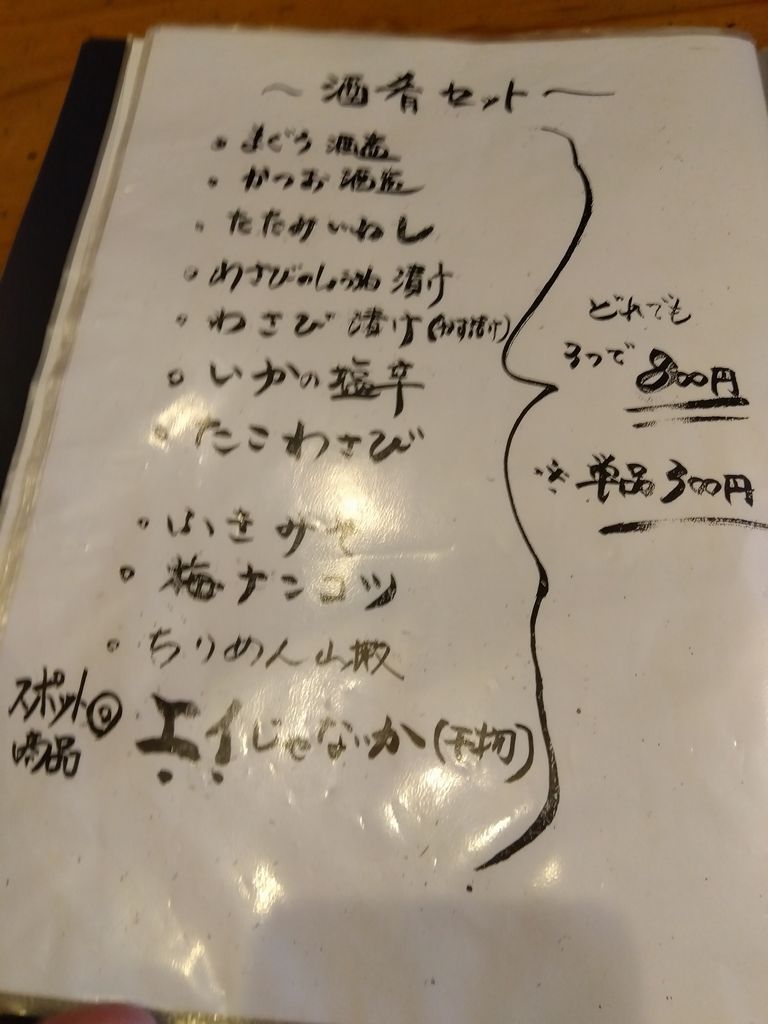 ～酒肴セット～
・まぐろ酒盗
・かつお酒盗
・たたみいわし
・わさびのしょうゆ漬け
・わさび漬け(かす漬け)
・いかの塩辛
・たこわさび
・ふきみそ
・梅ナンコツ
・ちりめん山椒
スポット商品 ◎ エイじゃないか(干物)
どれでも
3つで 800円
※単品300円